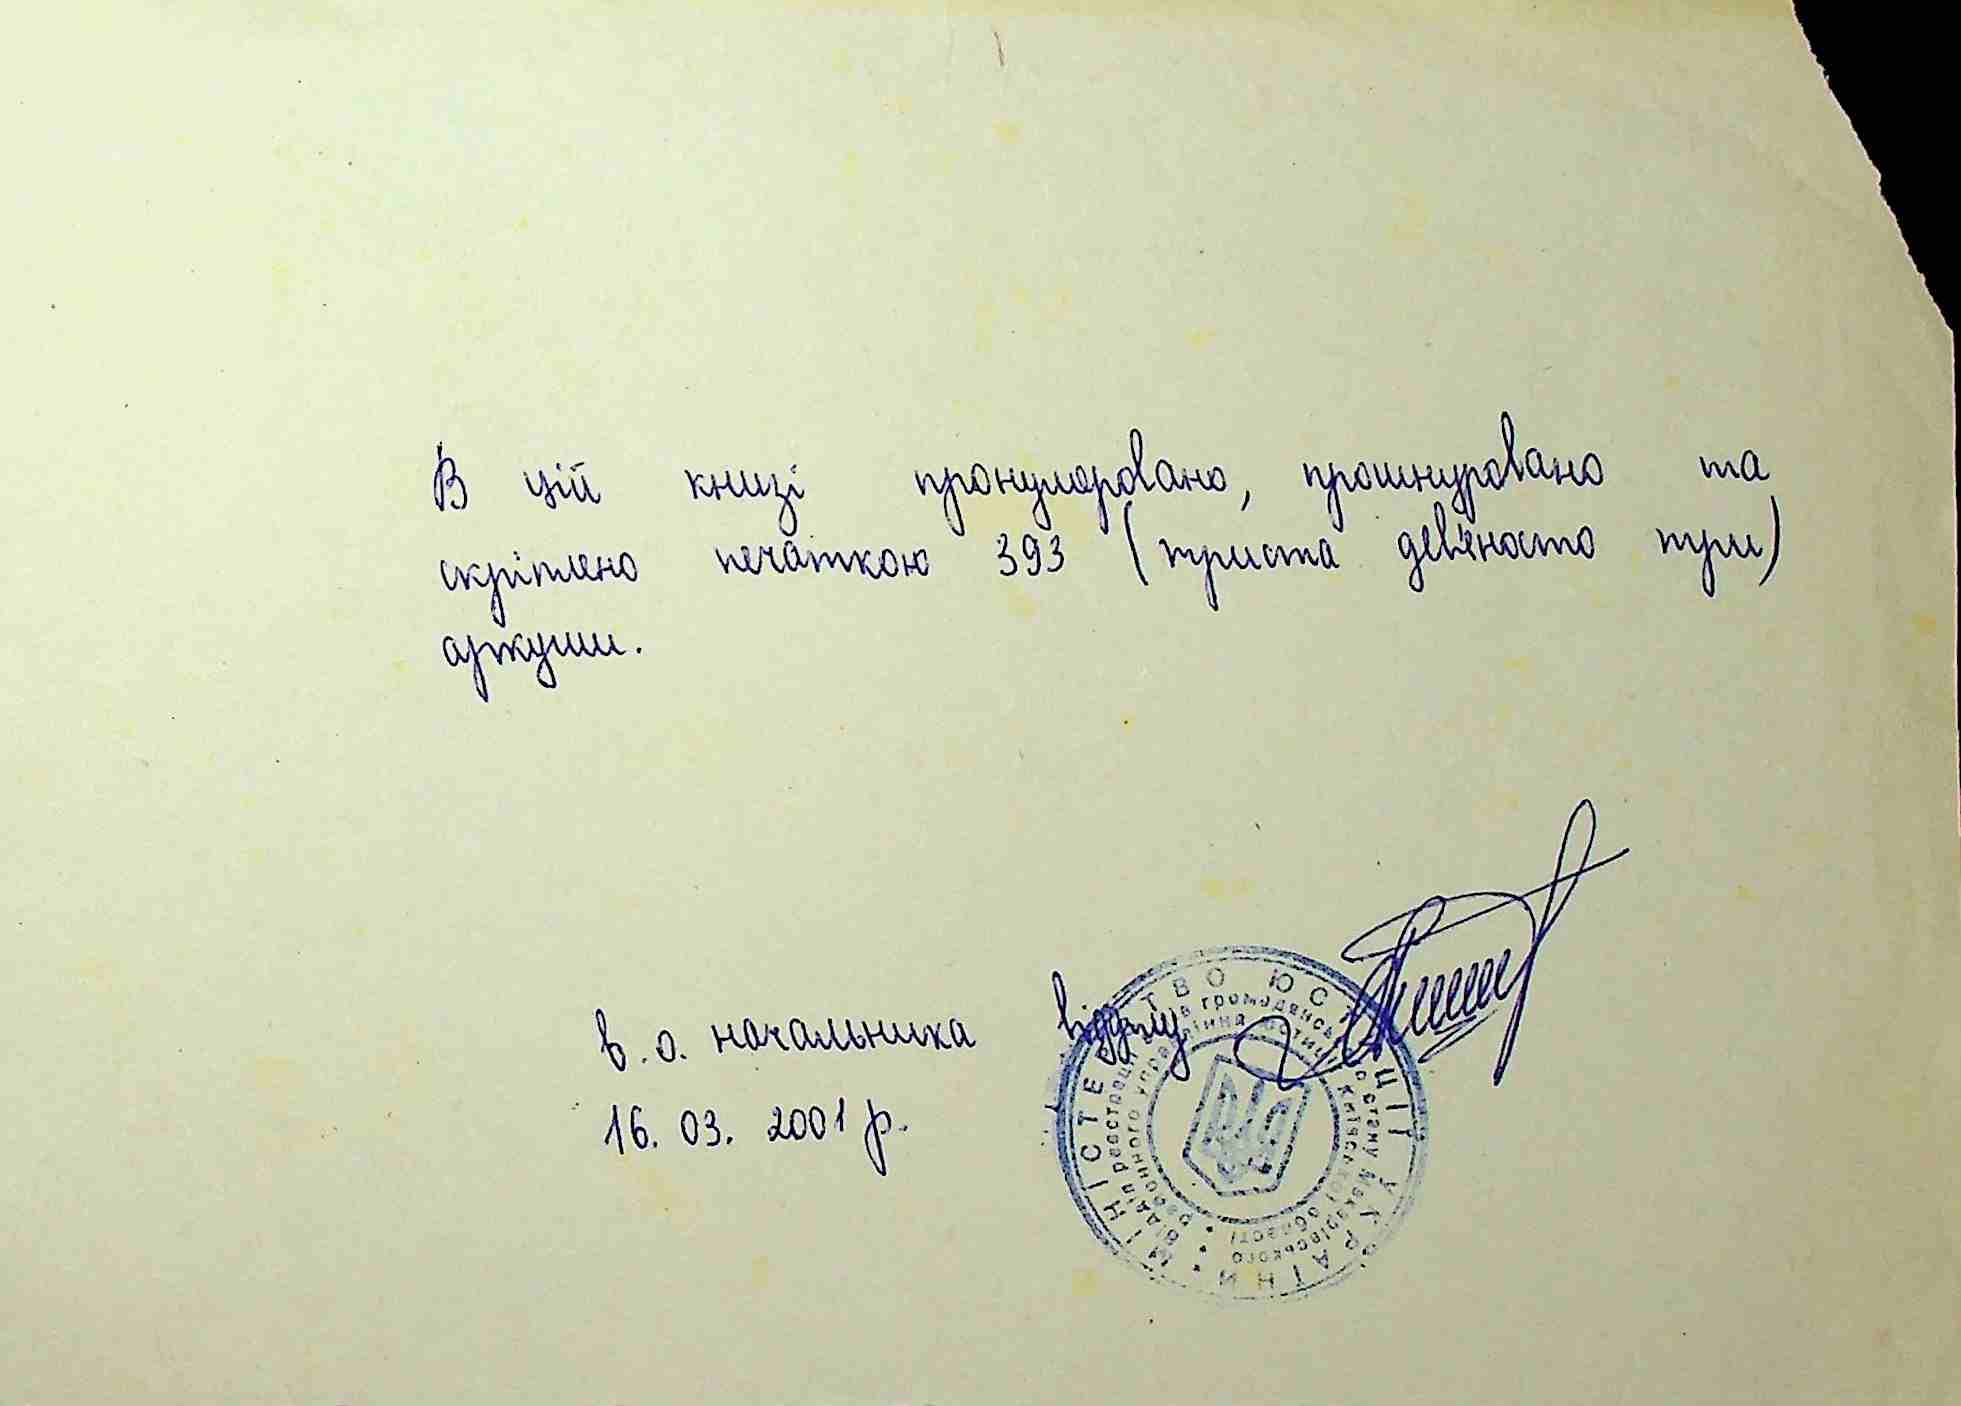 В цій книзі пронумеровано, прошнуровано та
скріплено печаткою 393 (триста дев'яносто три)
аркуши.
в.о. начальника відділу
16.03.2001 р.
МІНІСТЕРСТВО ЮСТИЦІЇ УКРАЇНИ
Відділ реєстрації актів громадянського стану Макарівського
районного управління юстиції Київської області